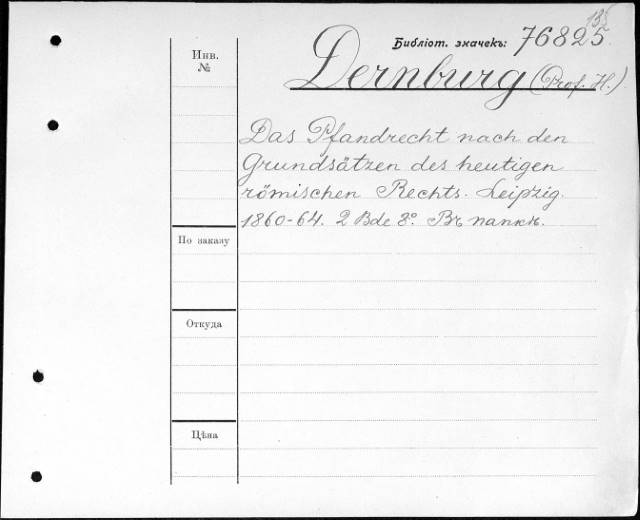 135
Библіот. значекъ: 76825
Инв.
№
Dernburg (Prof. H.)
Das Pfandrecht nach den
Grundsätzen des heutigen
römischen Rechts. Leipzig.
1860-64. 2 Bde 8º. Въ папкѣ.
По заказу
Откуда
Цѣна